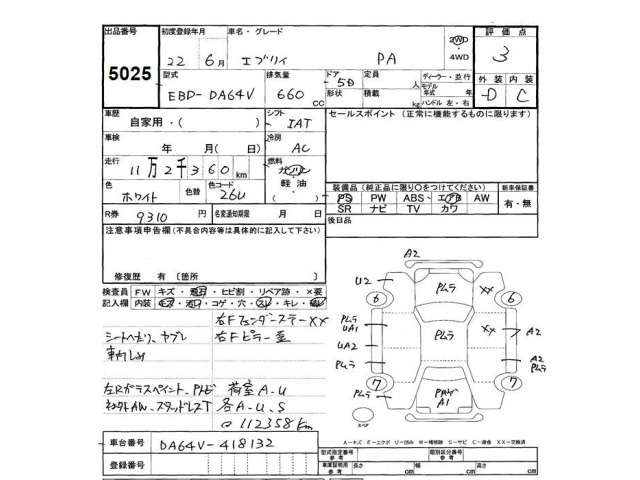 出品番号 初度登録年月 車名・グレード 2WD 4WD 評価点
5025 22年 6月 エブリイ PA 3
型式 排気量 ドア 形状 定員 積載 人 kg ディーラー・並行 モデル年式 年 ハンドル 左・右 外装 内装
EBD-DA64V 660 CC 5D D C
車歴 自家用・( ) シフト IAT セールスポイント (正常に機能するものに限ります)
車検 年 月( 日) 冷房 AC
走行 11万2千360km 燃料 ガソリン 軽油・ ( )
色 ホワイト 色替 色コード 26U
装備品(純正品に限り○をつけてください) 新車保証書
PS PW ABS エアB AW 有・無
SR ナビ TV カワ
R券 9310円 名変通知期限 月 日 後日品
注意事項申告欄(不具合内容等は具体的に記入して下さい)
修復歴 有 〔箇所 〕
検査員記入欄 FW キズ・ ・ヒビ割・リペア跡・×要
内装 キズ・ ・コゲ・穴・スレ・キレ・
右Fフェンダーステー××
シートヘたり、ヤブレ 右Fピラー歪
車内しみ
左Rガラスペイント、 荷室A-U
スタッドレスT 各A-U、S
112358km
車台番号 DA64V-418132
登録番号
A2
U2 Pムラ XX
6 6
Pムラ UA1 Pムラ XX A2
UA2
Pムラ A2 Pムラ
7 7
Pムラ A1
スペア
A-キズ E-エクボ U-凹み W-補修跡 S-サビ C-腐食 XX-交換済
型式指定番号 参考 類別区分番号 参考
車庫証明用 参考 長さ cm 幅 cm 高さ cm